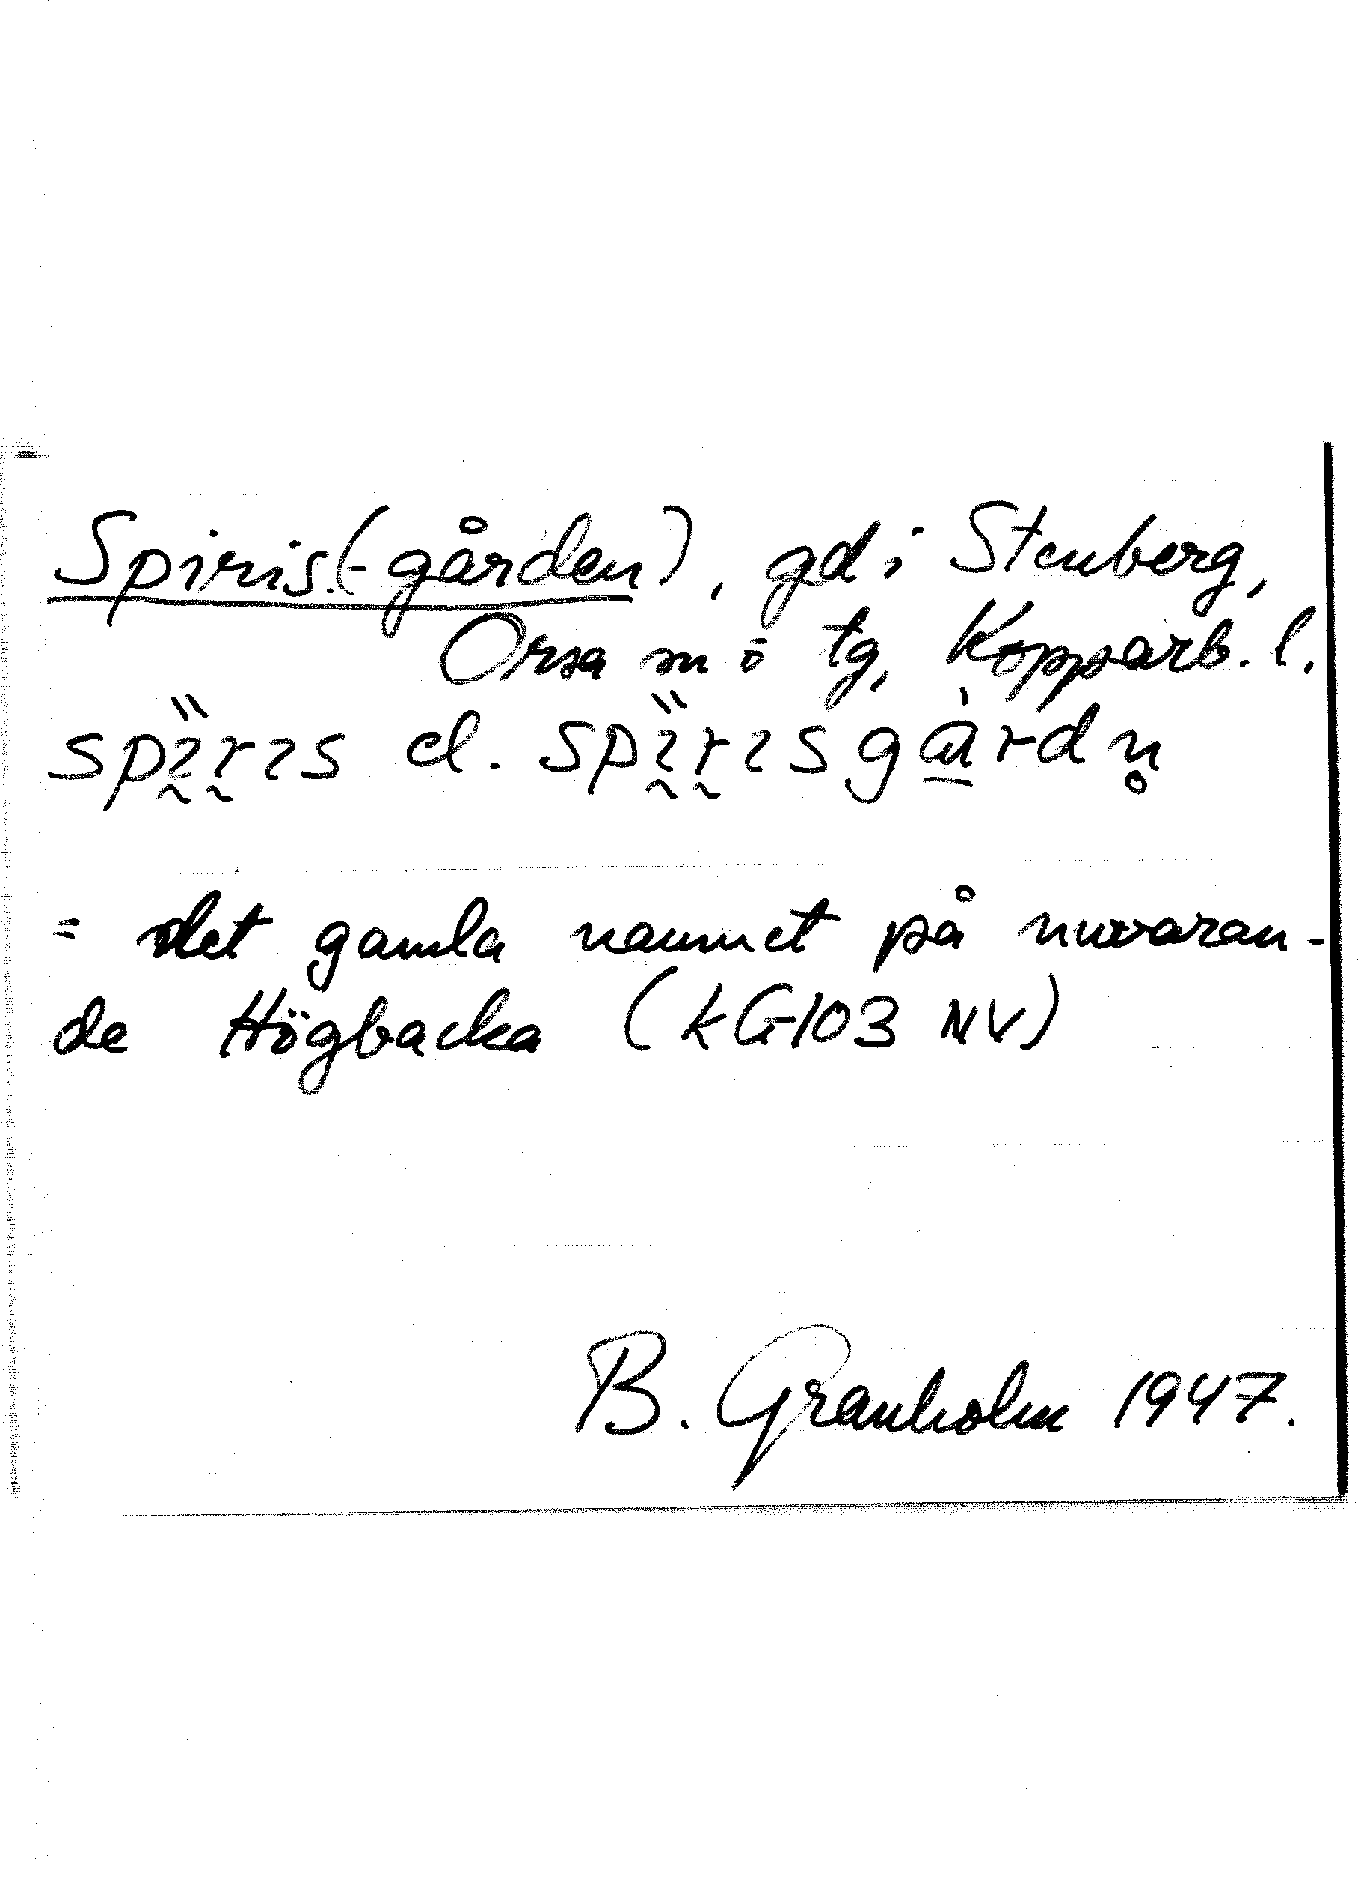 Spiris(-gården), gd i Stenberg,
Orsa sn o tg, Kopparb. l.
el.
= det gamla namnet på nuvaran-
de Högbacka (kG 103 NV)
B. Granholm 1947.